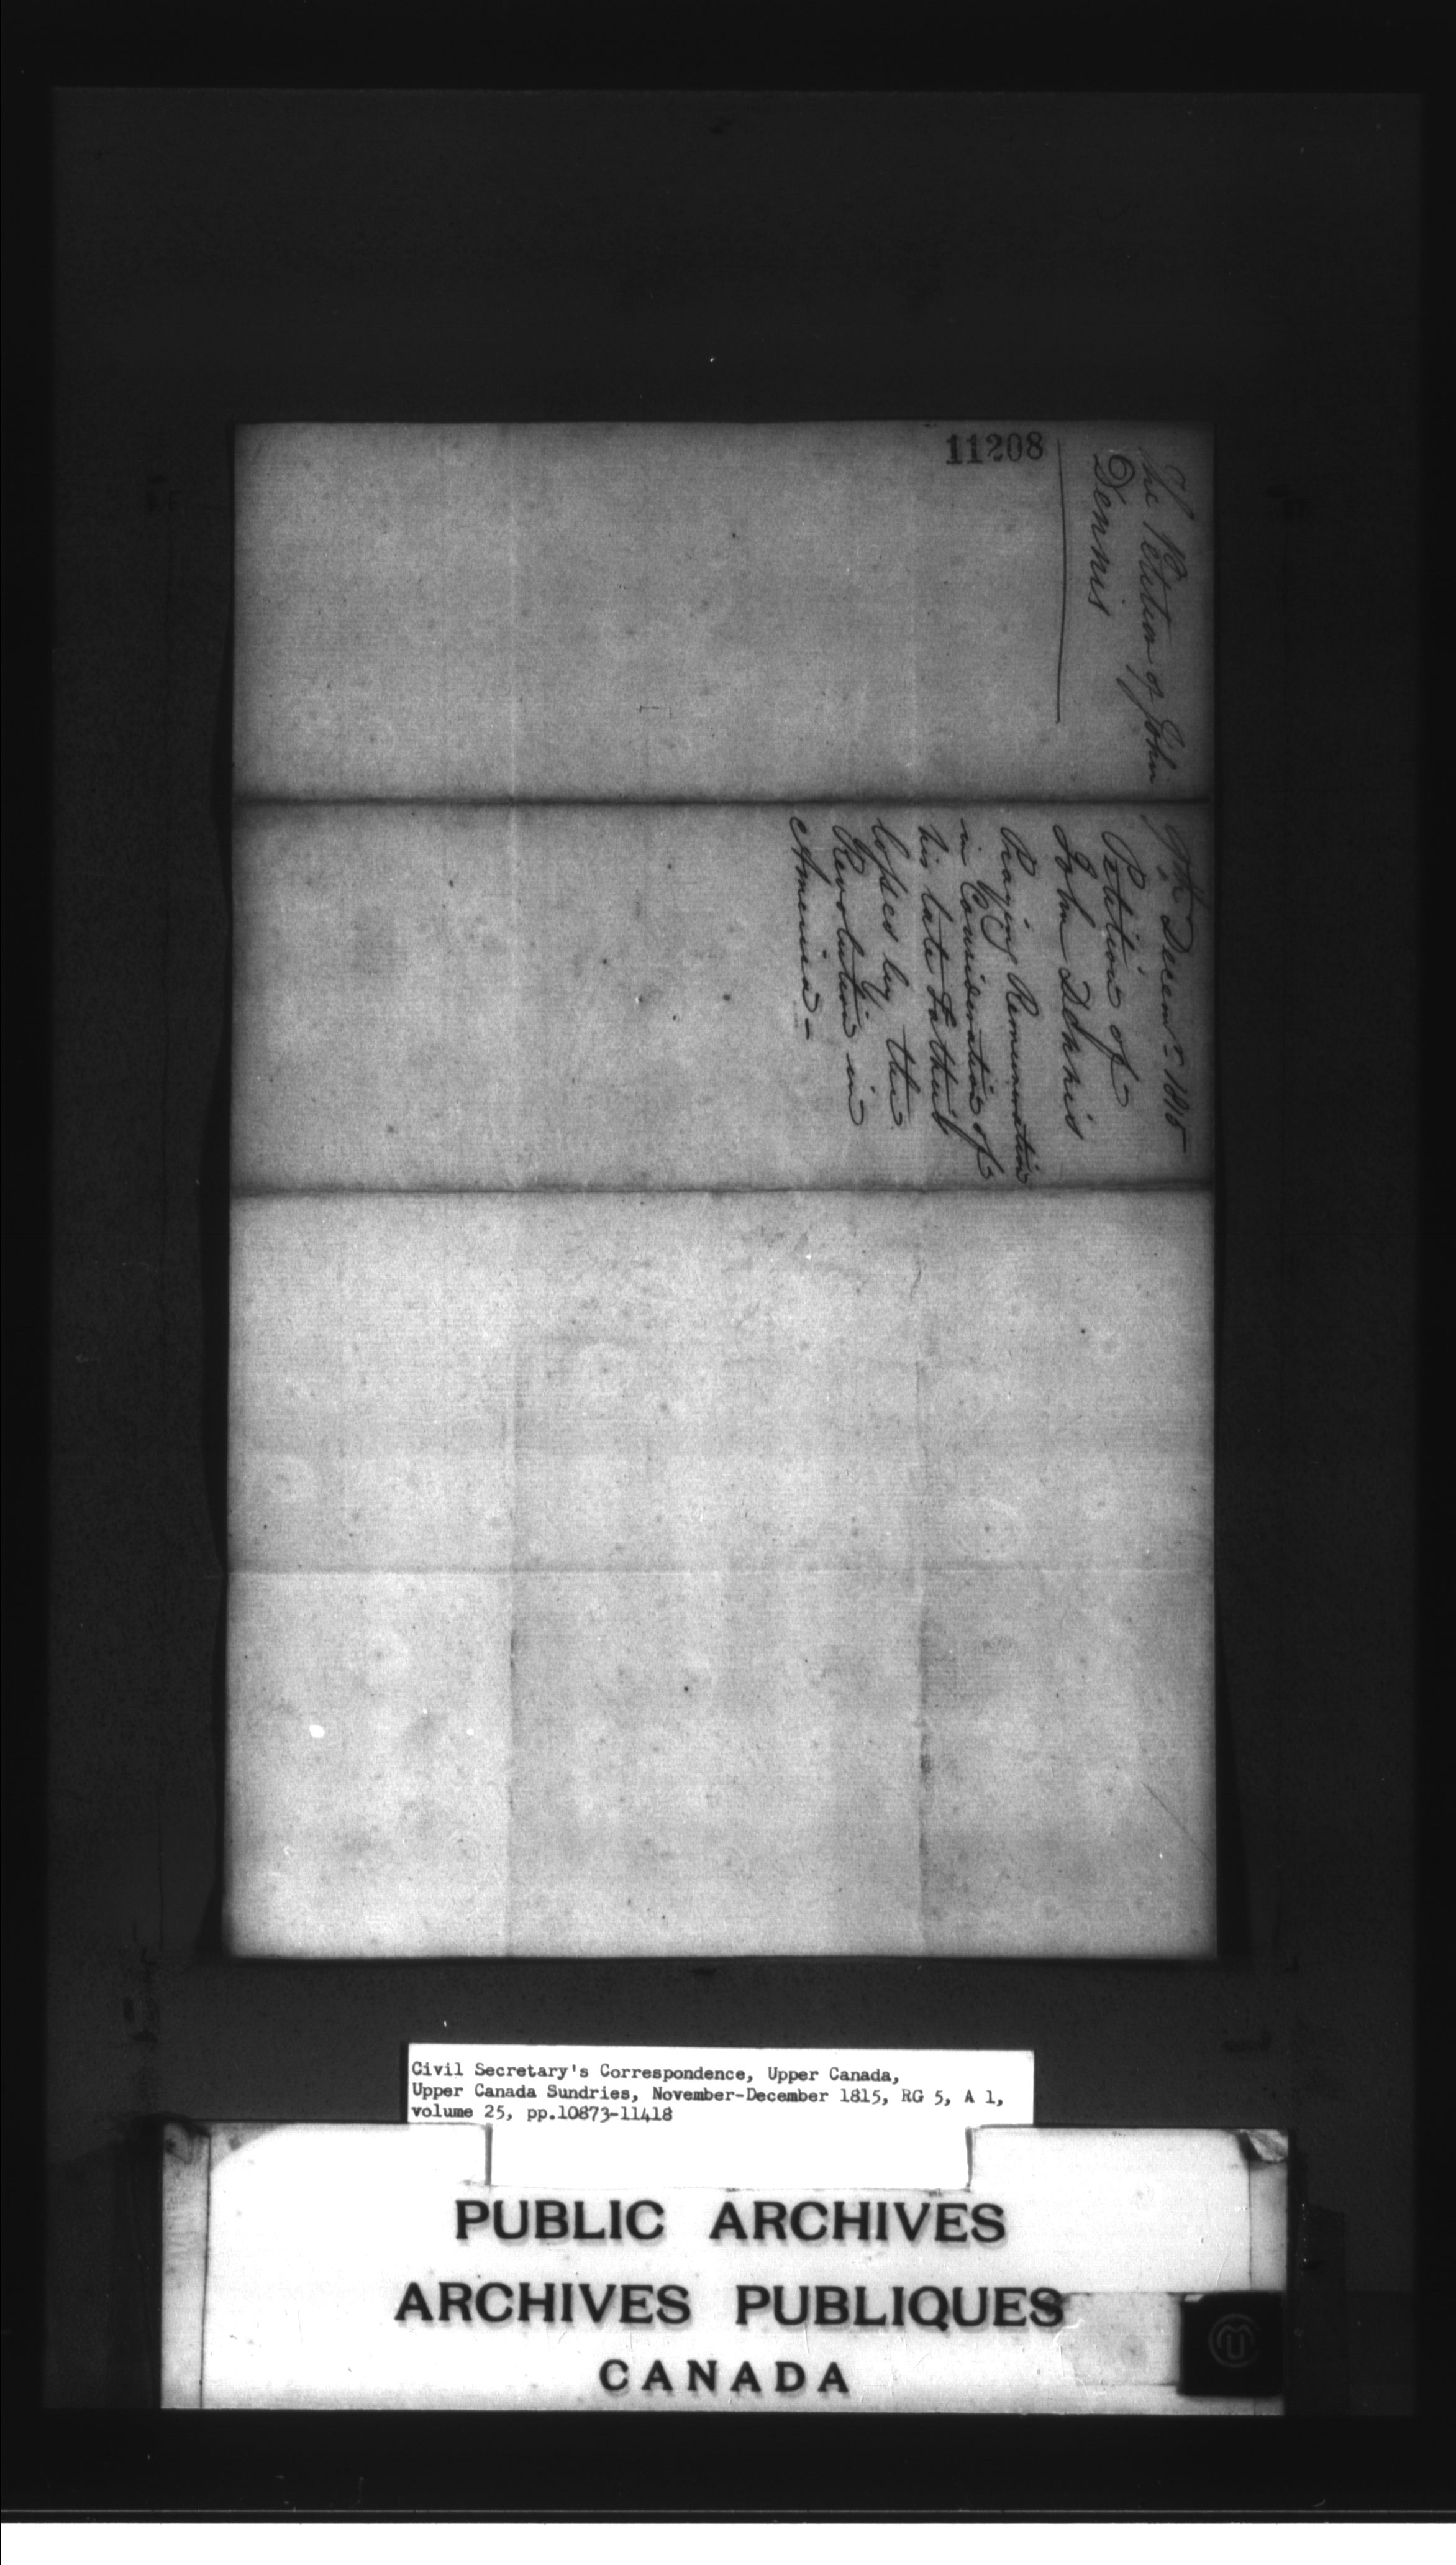 11208
The Petition of John
Dennis
Decemr 1815
Petition of
John Dennis
Praying Remuneration
in Consideration of
his late Father's
losses by the
Revolution in
America -
Civil Secretary's Correspondence, Upper Canada,
Upper Canada Sundries, November-December 1815, RG 5, A 1,
volume 25, pp.10873-11418
PUBLIC ARCHIVES
ARCHIVES PUBLIQUES
CANADA